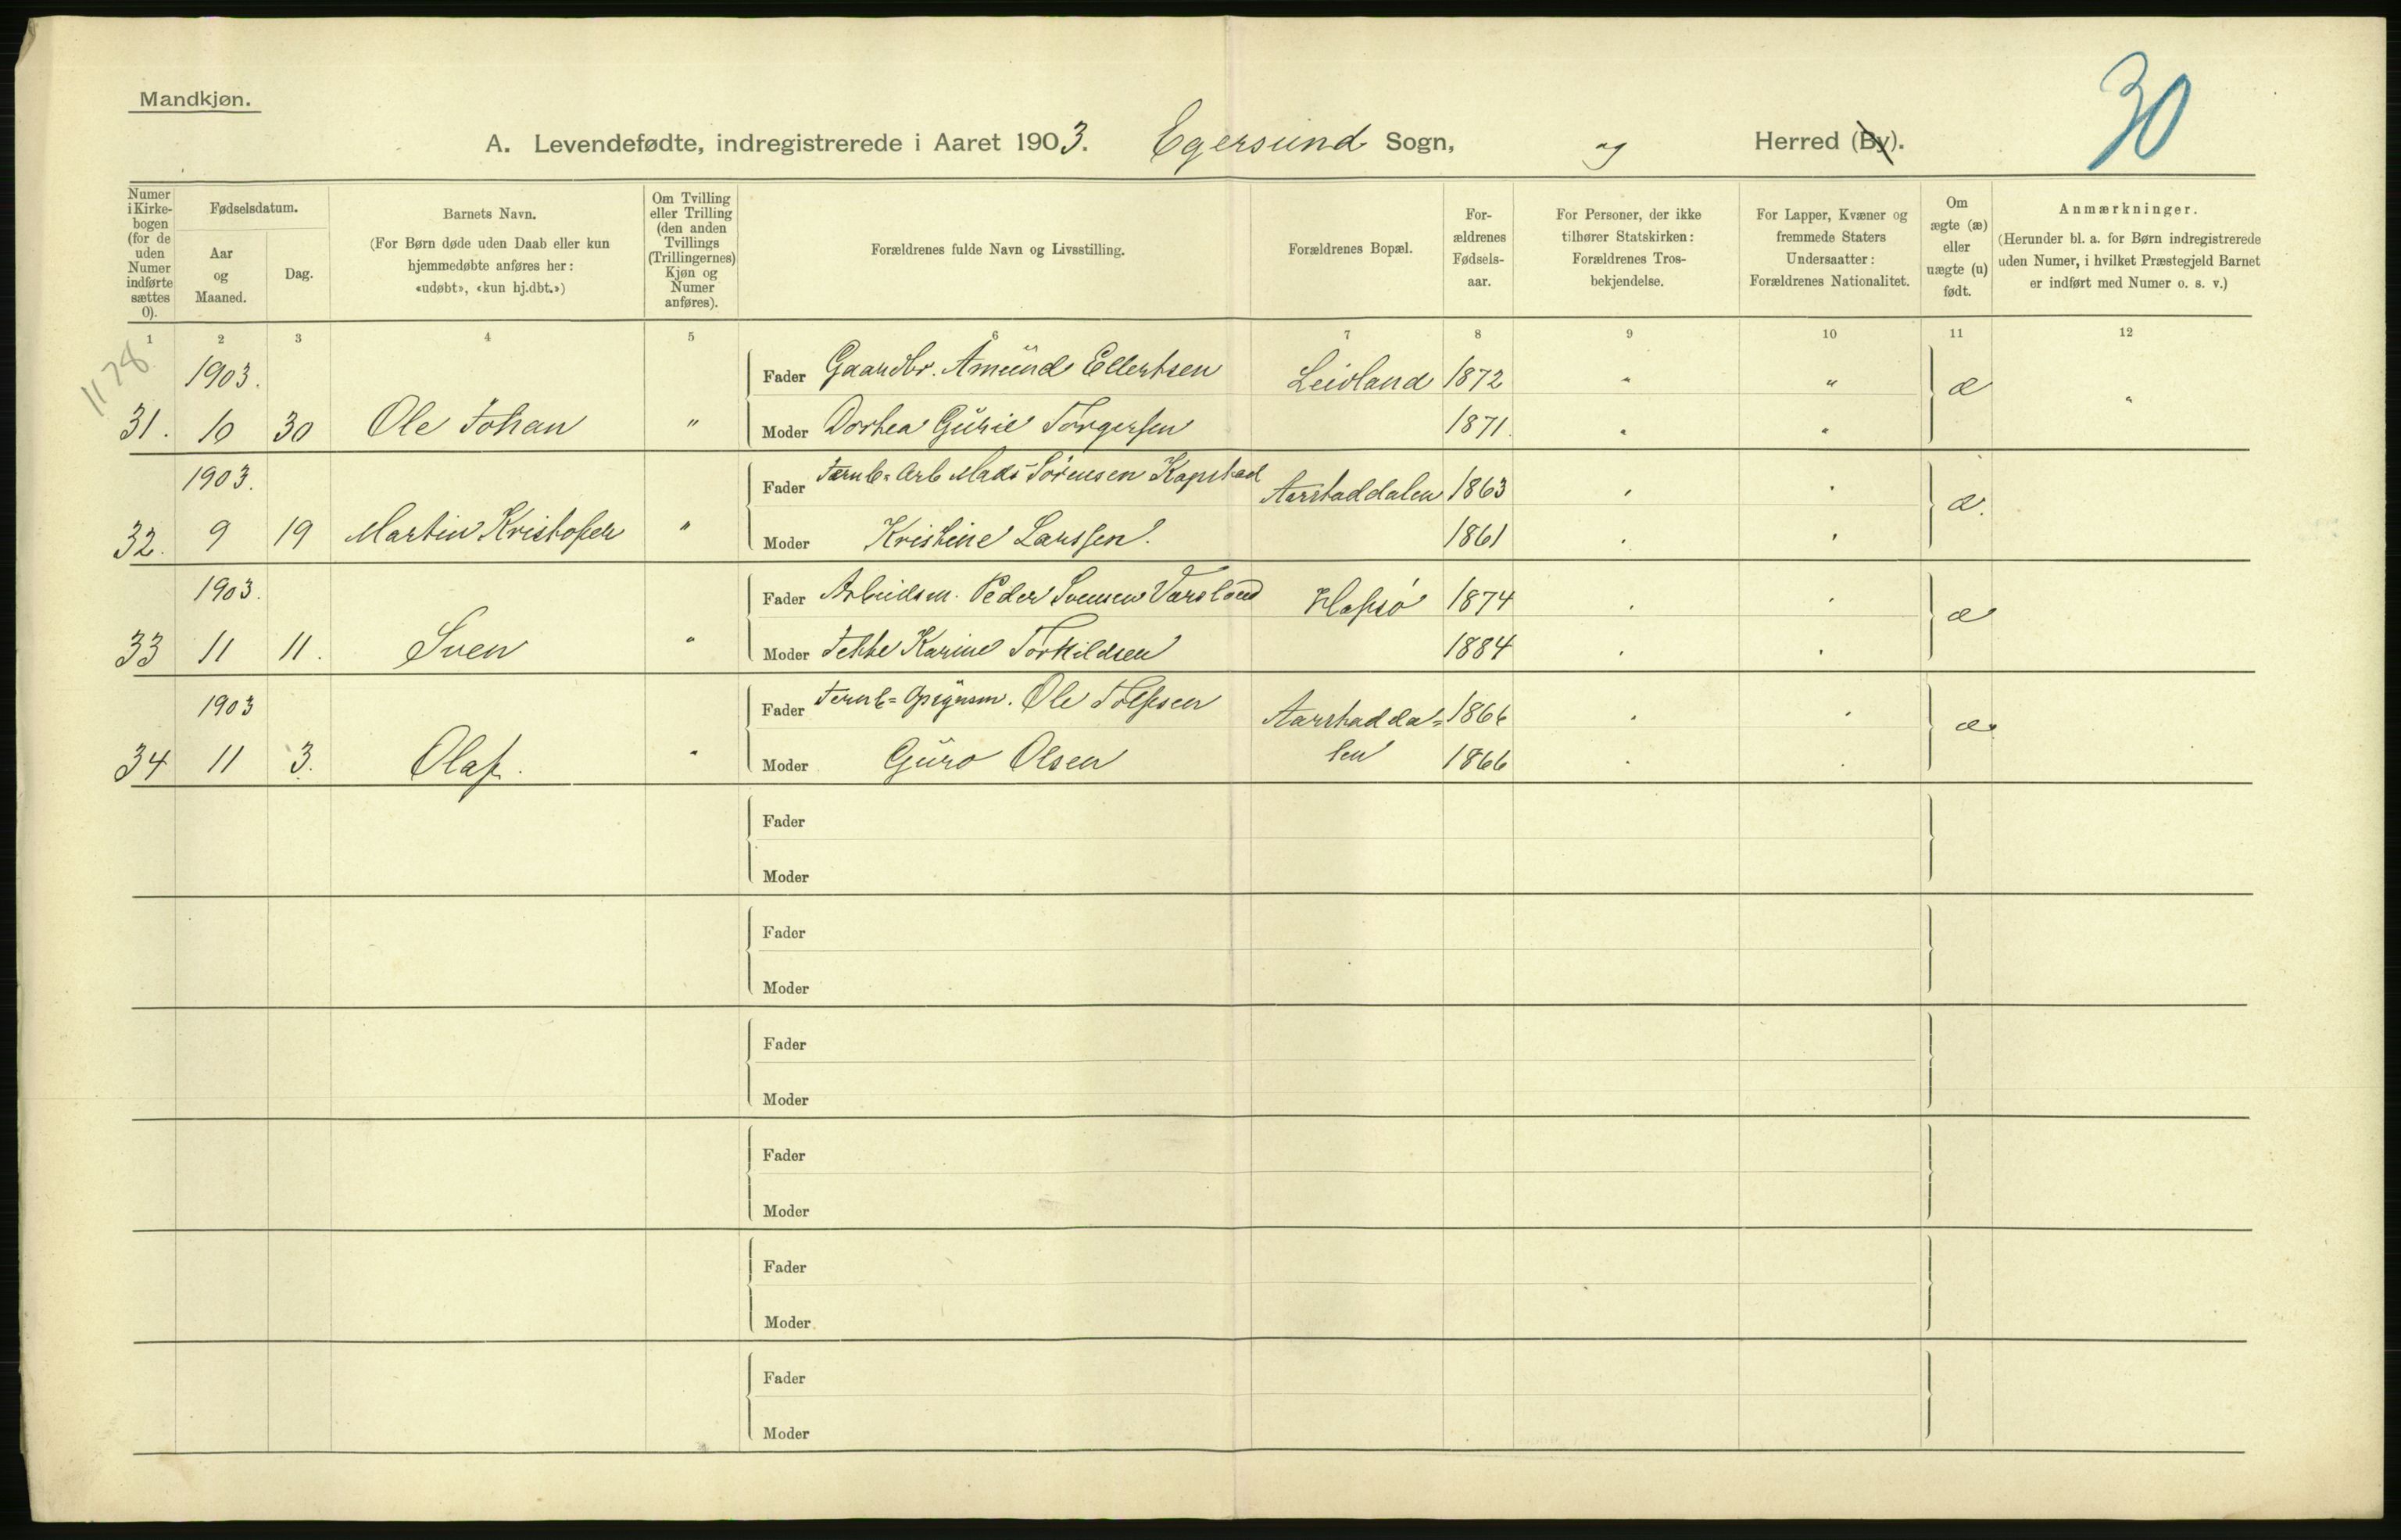 Mandkjøn.
30
A. Levendefødte, indregistrerede i Aaret 1903. Egersund Sogn, og Herred (By).
Numer i Kirkebogen (for de uden Numer indførte sættes 0).
Fødselsdatum.
Aar og Maaned.
Dag.
Barnets Navn.
(For Børn døde uden Daab eller kun hjemmedøbte anføres her: «udøbt», «kun hj.dbt.»)
Om Tvilling eller Trilling (den anden Tvillings (Trillingernes) Kjøn og Numer anføres).
Forældrenes fulde Navn og Livsstilling.
Forældrenes Bopæl.
Forældrenes Fødselsaar.
For Personer, der ikke tilhører Statskirken: Forældrenes Trosbekjendelse.
For Lapper, Kvæner og fremmede Staters Undersaatter: Forældrenes Nationalitet.
Om ægte (æ) eller uægte (u) født.
Anmærkninger.
(Herunder bl. a. for Børn indregistrerede uden Numer, i hvilket Præstegjeld Barnet er indført med Numer o. s. v.)
1 2 3 4 5 6 7 8 9 10 11 12
1178
1903. Fader Gaardbr. Amund Ellertsen Leidland 1872 " " æ "
31. 10 30 Ole Johan " Moder Dorthea Gurie Torgersen 1871. " "
1903. Fader Jernb=Arb Mads Sørensen Kapstad Aarstaddalen 1863 " " æ.
32. 9 19 Martin Kristofer " Moder Kristine Larssen. 1861 " "
1903. Fader Arbeidsm. Peder Svensen Varsland Hafsø 1874 " " æ
33 11 11. Sven " Moder Karine Torkildsen 1884 " "
1903 Fader Jernb=Opsynsm. Ole Aarstadda= 1866 " " æ
34 11 3. Olaf. " Moder Guro Olsen len 1866 " "
Fader
Moder
Fader
Moder
Fader
Moder
Fader
Moder
Fader
Moder
Fader
Moder